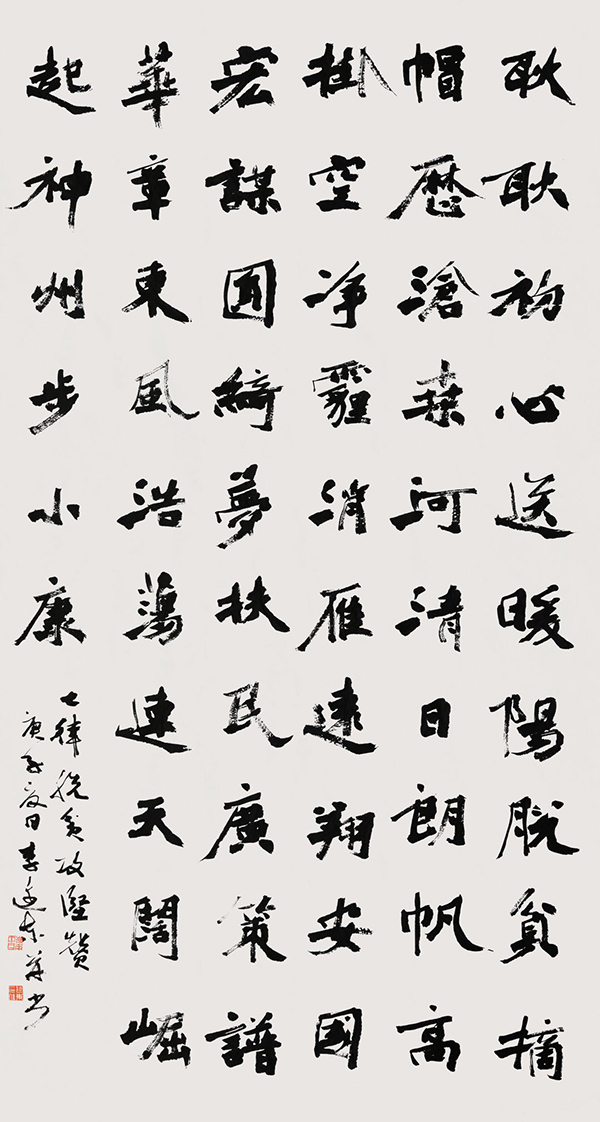 耿耿初心送暖陽脫貧摘
帽歷滄桑河清日朗帆高
掛空净霾消雁遠翔安國
宏謀圓綺夢扶民廣策譜
華章東風浩蕩連天闊崛
起神州步小康
七律脫貧攻堅贊
庚子夏日李